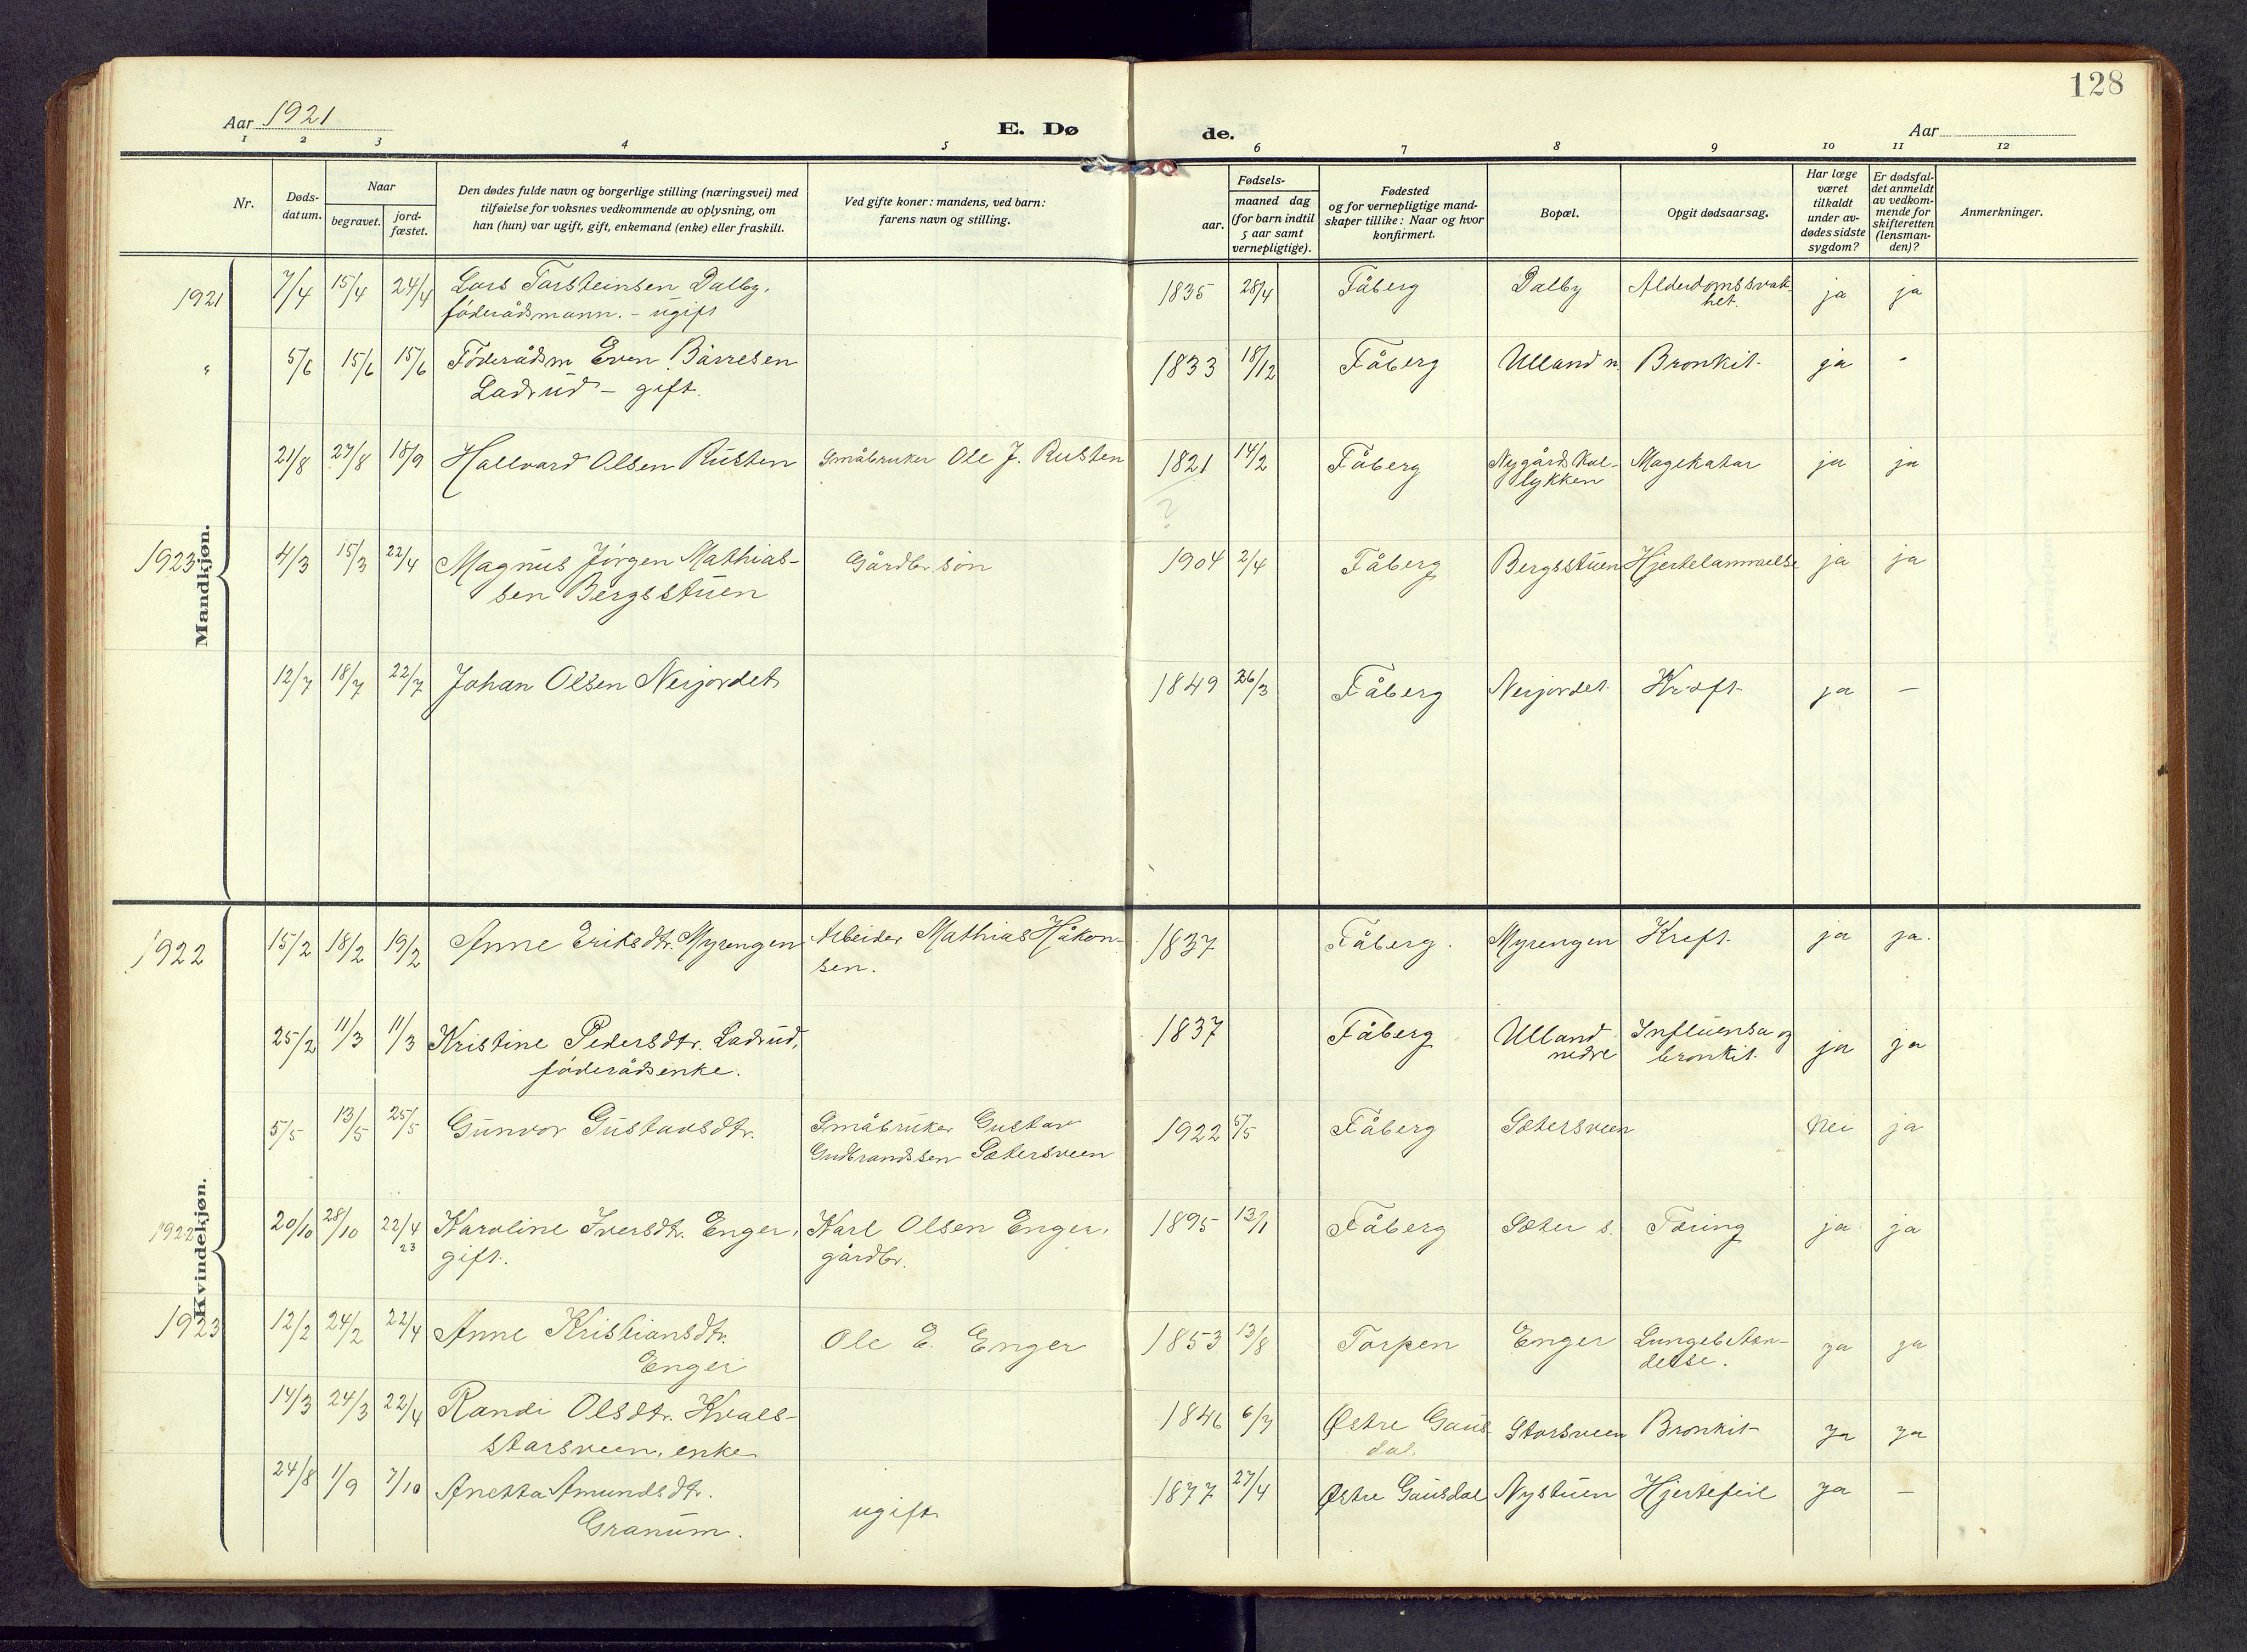 128
Aar 1921
E. Dø de.
Aar
1 2 3 4 5 6 7 8 9 10 11 12
Nr.
Døds-
datum.
Naar
begravet.
jord-
fæstet.
Den dødes fulde navn og borgerlige stilling (næringsvei) med
tilføielse for voksnes vedkommende av oplysning, om
han (hun) var ugift, gift, enkemand (enke) eller fraskilt.
Ved gifte koner: mandens, ved barn:
farens navn og stilling.
Fødsels-
aar.
maaned dag
(for barn indtil
5 aar samt
vernepligtige).
Fødested
og for vernepligtige mand-
skaper tillike: Naar og hvor
konfirmert.
Bopæl.
Opgit dødsaarsag.
Har læge
været
tilkaldt
under av-
dødes sidste
sygdom?
Er dødsfal-
det anmeldt
av vedkom-
mende for
skifteretten
(lensman-
den)?
Anmerkninger.
Mandkjøn.
1921 7/4 15/4 24/4 Lars Torsteinsen Dalby, 1835 28/4 Fåberg Dalby Alderdomssvak- ja ja
föderådsmann. - ugift het.
" 5/6 15/6 15/6 Föderådsm Even Bårresen 1833 18/12 Fåberg Ulland n. Bronkit. ja -
Ladrud - gift.
21/8 27/8 18/9 Hallvard Olsen Rusten Småbruker Ole J. Rusten 1821 14/2 Fåberg Nygårds Magekatar ja ja
lykken
?
1923 4/3 15/3 22/4 Magnus Jörgen Mathias- Gårdbr sön 1904 2/4 Fåberg Bergsstuen Hjertelammelse ja ja
sen Bergsstuen
12/7 18/7 22/7 Johan Olsen Nerjordet 1849 26/3 Fåberg Nerjordet Kræft ja —
Kvindekjøn.
1922 15/2 18/2 19/2 Anne Eriksdtr. Myrengen Arbeider Mathias Håkon- 1837 Fåberg. Myrengen Kreft. ja ja.
sen.
25/2 11/3 11/3 Kristine Pedersdtr. Ladrud, 1837 Fåberg Ulland Influensa og ja ja
föderådsenke. nedre bronkit.
5/5 13/5 25/5 Gunvor Gustavsdtr. Småbruker Gustav 1922 5/5 Fåberg Sætersveen Nei ja
Gudbrandssen Sætersveen
1922 20/10 28/10 22/4 23 Karoline Iversdtr. Enger, Karl Olsen Enger, 1895 13/1 Fåberg Sæter s. Tæring ja ja
gift. gårdbr.
1923 12/2 24/2 22/4 Anne Kristiansdtr. Ole E. Enger 1853 13/8 Torpen Enger Lungebeten- ja ja
Enger delse.
14/3 24/3 22/4 Randi Olsdtr. Kvals- 1846 6/7 Østre Gaus- Storsveen Bronkit ja ja
storsveen, enke dal.
24/8 1/9 7/10 Anetta Amundsdtr. ugift 1877 27/4 Østre Gausdal Nystuen Hjertefeil ja —
Granum.